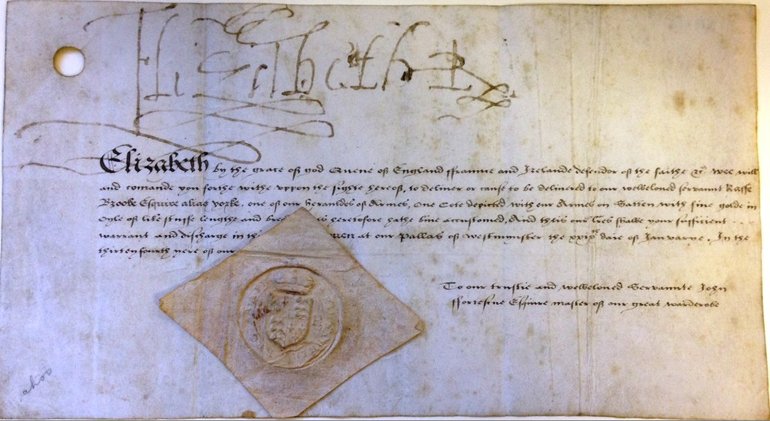 Elizabeth R
Elizabeth by the grace off god Quene off England ffraunce and Irelande defendor of the faithe &c. Wee will
and comande you forthe withe vppon the sighte hereof, to deliuer or cause to be deliuered to our welbeloued servaunt Raffe
Brooke Esquire alias yorke, one of our heraulds of Armes, One Cote depicted with our Armes on Satten with fine golde in
Oyle of like stuffe lengthe and as heretofore hathe bine accustomed, And theis our shalbe your sufficient
warrant and discharge in this at our Pallais of Westminster the daie of Januarye. In the
thirtenfourth yere of our
To our trustie and welbeloued Servaunte John
ffortescue Esquire master of our great warderobe